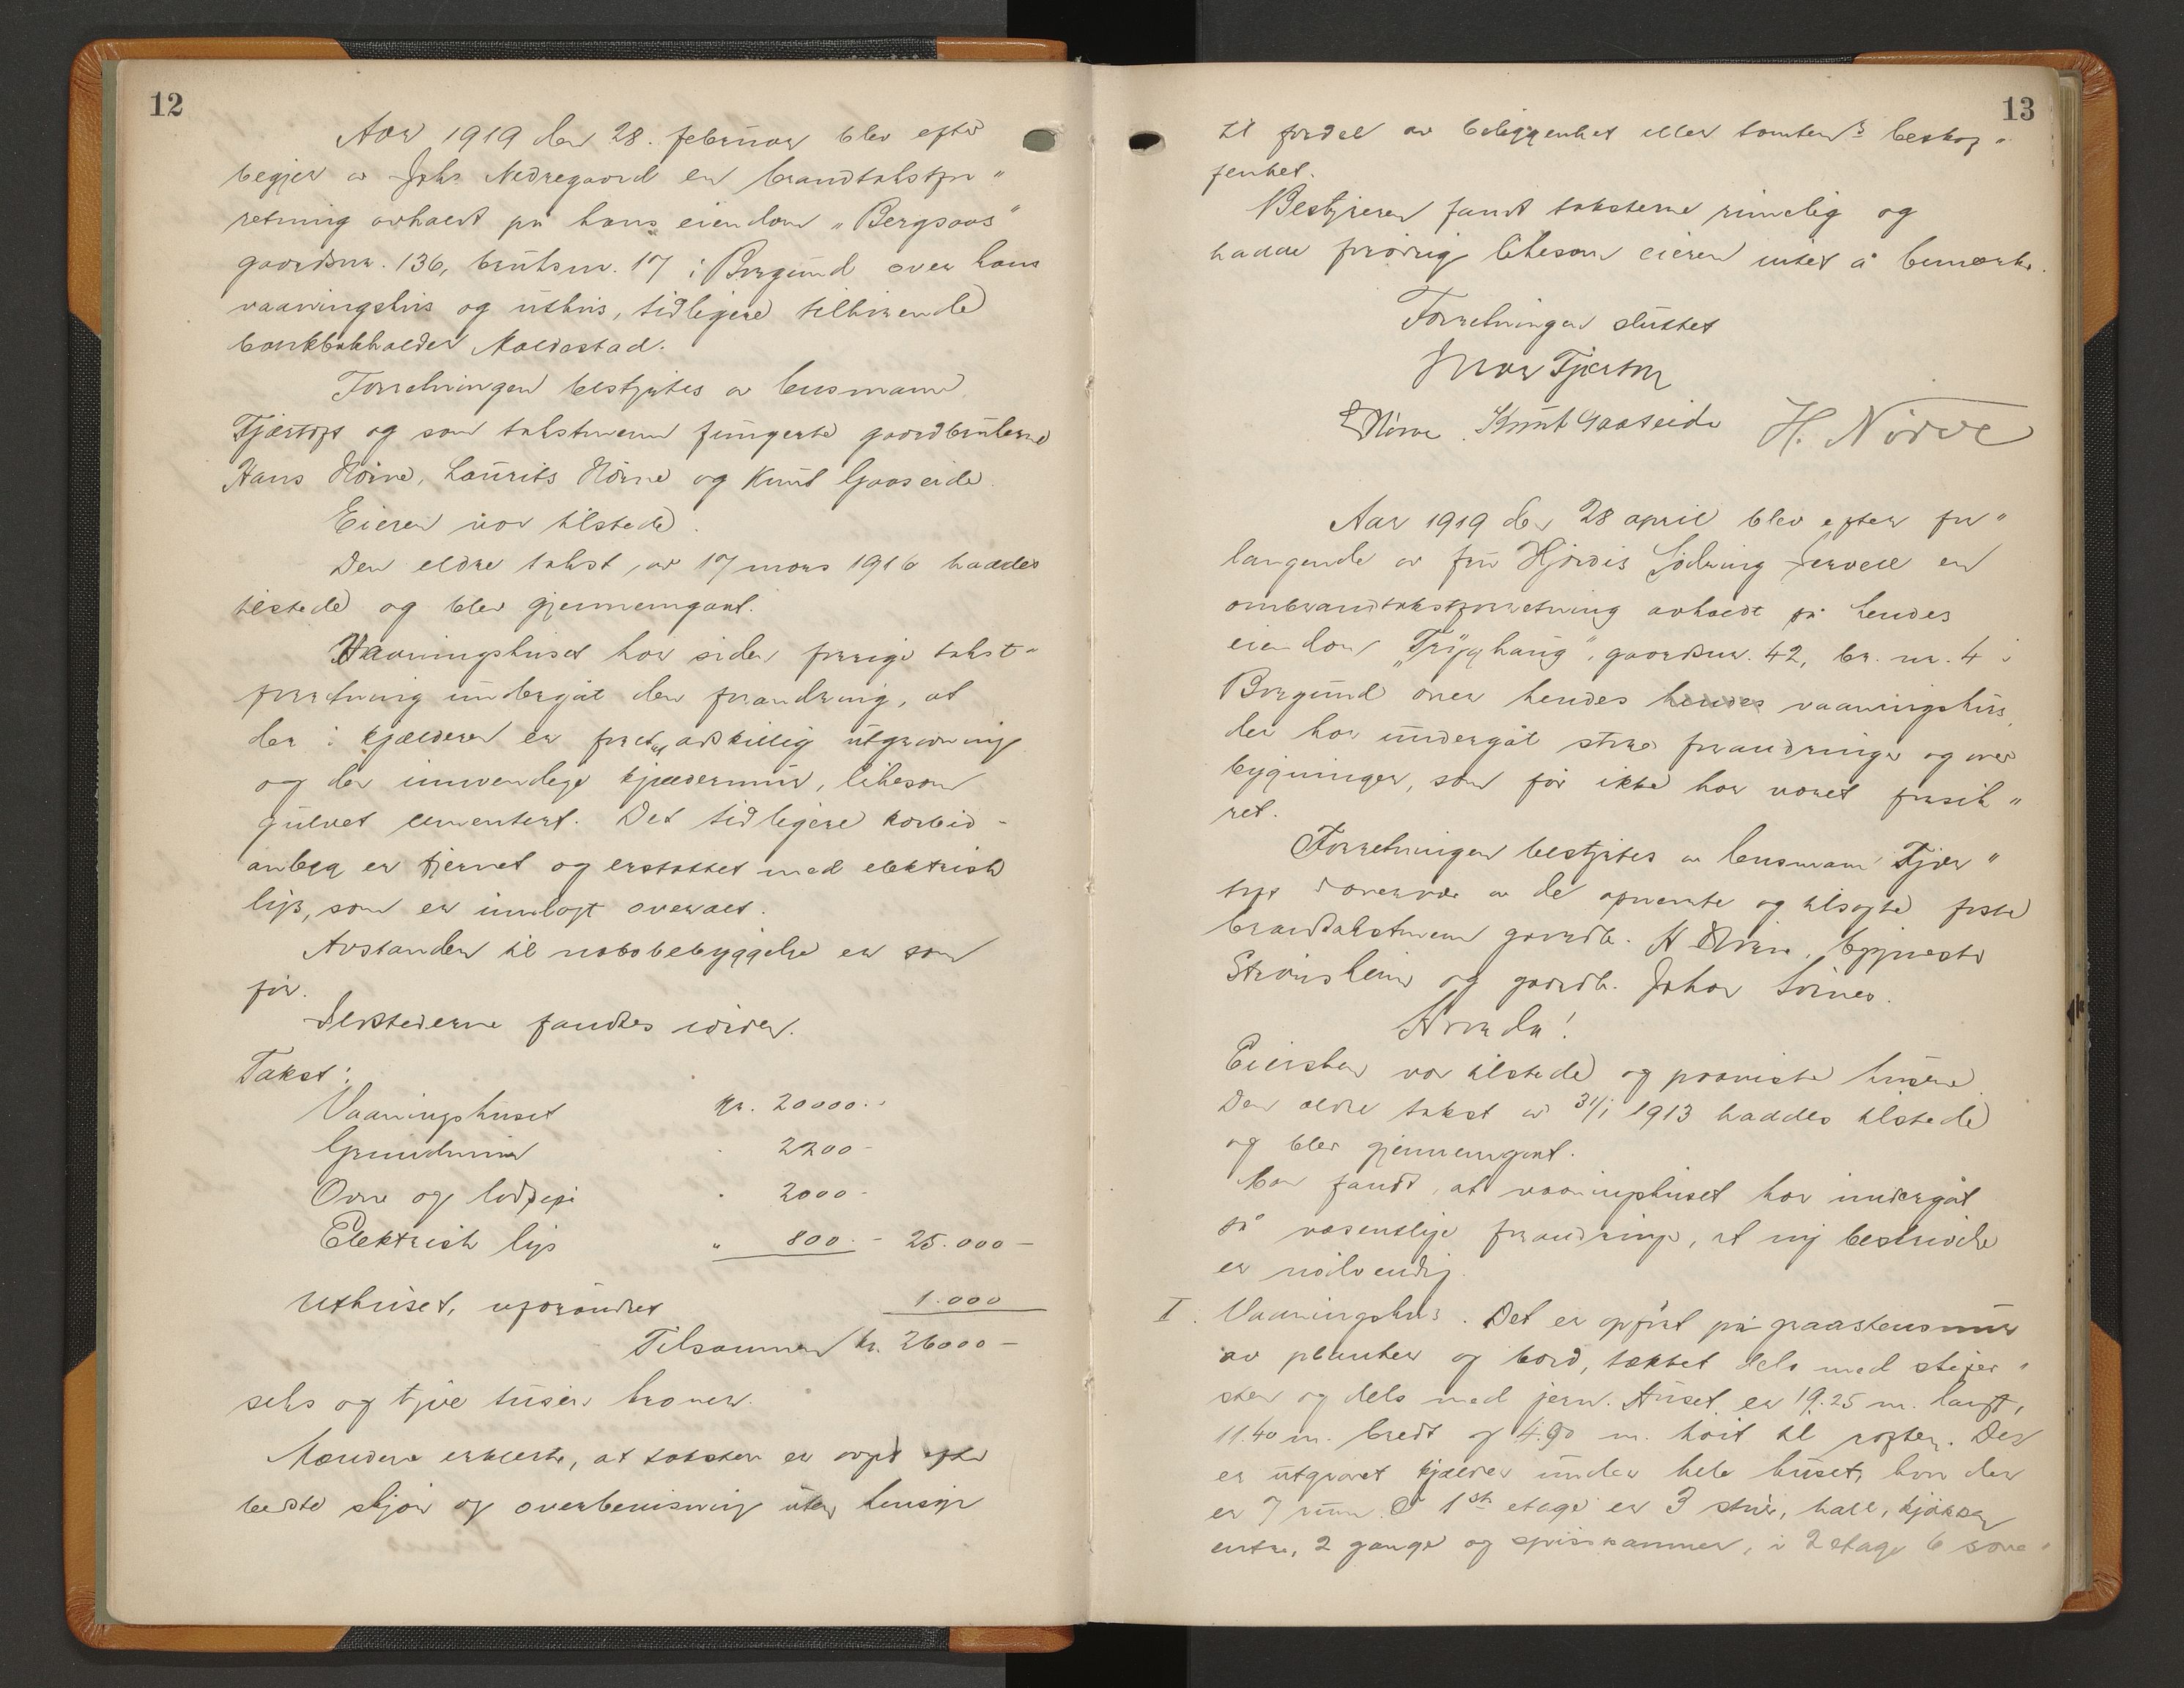 12
Aar 1919 den 28. februar blev efter
begjær av Johs Nedregaard en brandtakstfor"
retning avholdt på hans eiendom "Bergsaas"
gaardsnr. 136, bruksnr. 17 i Borgund over hans
vaaningshus og uthus, tidligere tilhørende
bankbokholder Moldestad.
Forretningen bestyrtes av lensmann
Fjærtoft og som takstmenn fungerte gaardbrukerne
Hans Nörve, Laurits Nörve og Knut Gaaseide.
Eieren var tilstede.
Den eldre takst, av 17 mars 1916 haddes
tilstede og blev gjennemgaat.
Vaaningshuset har siden forrige takst-
forretning undergåt den forandring, at
der i kjælderen er foretat adskillig utgravning
og den innvendige kjældermur, likesom
gulvet cementert. Det tidligere karbid-
anlegg er fjernet og erstattet med elektrisk
lys, som er innlagt overalt.
Avstanden til nabobebyggelse er som
för.
Ildstederne fandtes iorden.
Takst:
Vaaningshuset kr. 20000.-
Grundmur " 2200-
Ovne og lodpipe " 2000-
Elektrisk lys " 800.- 25.000-
Uthuset, uforandret 1.000
Tilsammen kr. 26000-
seks og tyve tusen kroner.
Mændene erklærte, at taksten er avgit efter
bedste skjøn og overbevisning uten hensyn
13
til fordel av beliggenhet eller tomtens beskaf"
fenhet.
Bestyreren fandt taksterne rimelig og
hadde forövrig likesom eieren intet å bemærke.
Forretningen sluttet
Ivar Fjærtoft
L Nörve Knut Gaaseide H. Nörve
Aar 1919 den 28 april blev efter for"
langende av fru Hjördis Södring Jervell en
ombrandtakstforretning avholdt på hendes
eiendom "Trygghaug", gaardsnr. 42, br. nr. 4 i
Borgund over hendes hendes vaaningshus,
der har undergåt store forandringer og over
bygninger, som för ikke har været forsik"
ret.
Forretningen bestyrtes av lensmann Fjær"
toft i overvær av de opnevnte og tilsagte faste
brandtakstmenn gaardb. H Nörve, byggmester
Strömsheim og gaardb. Johan Sörnes.
Hvorda!
Eiersken var tilstede og paaviste husene
Den eldre takst av 31/1 1913 haddes tilstede
og blev gjennemgaat.
Man fandt, at vaaningshuset har undergåt
så væsentlige forandringer, at ny beskrivelse
er nödvendig.
I. Vaaningshus. Det er opfört på graastensmur
av planker og bord, tækket dels med skifer"
sten og dels med jern. Huset er 19.25 m. langt,
11.40 m. bredt og 4.90 m. höit til röften. Der
er utgravet kjælder under hele huset, hvor der
er 7 rum. I 1ste etage er 3 stuer, hall, kjökken
entre, 2 gange og spiskammer, i 2 etage 6 sove"